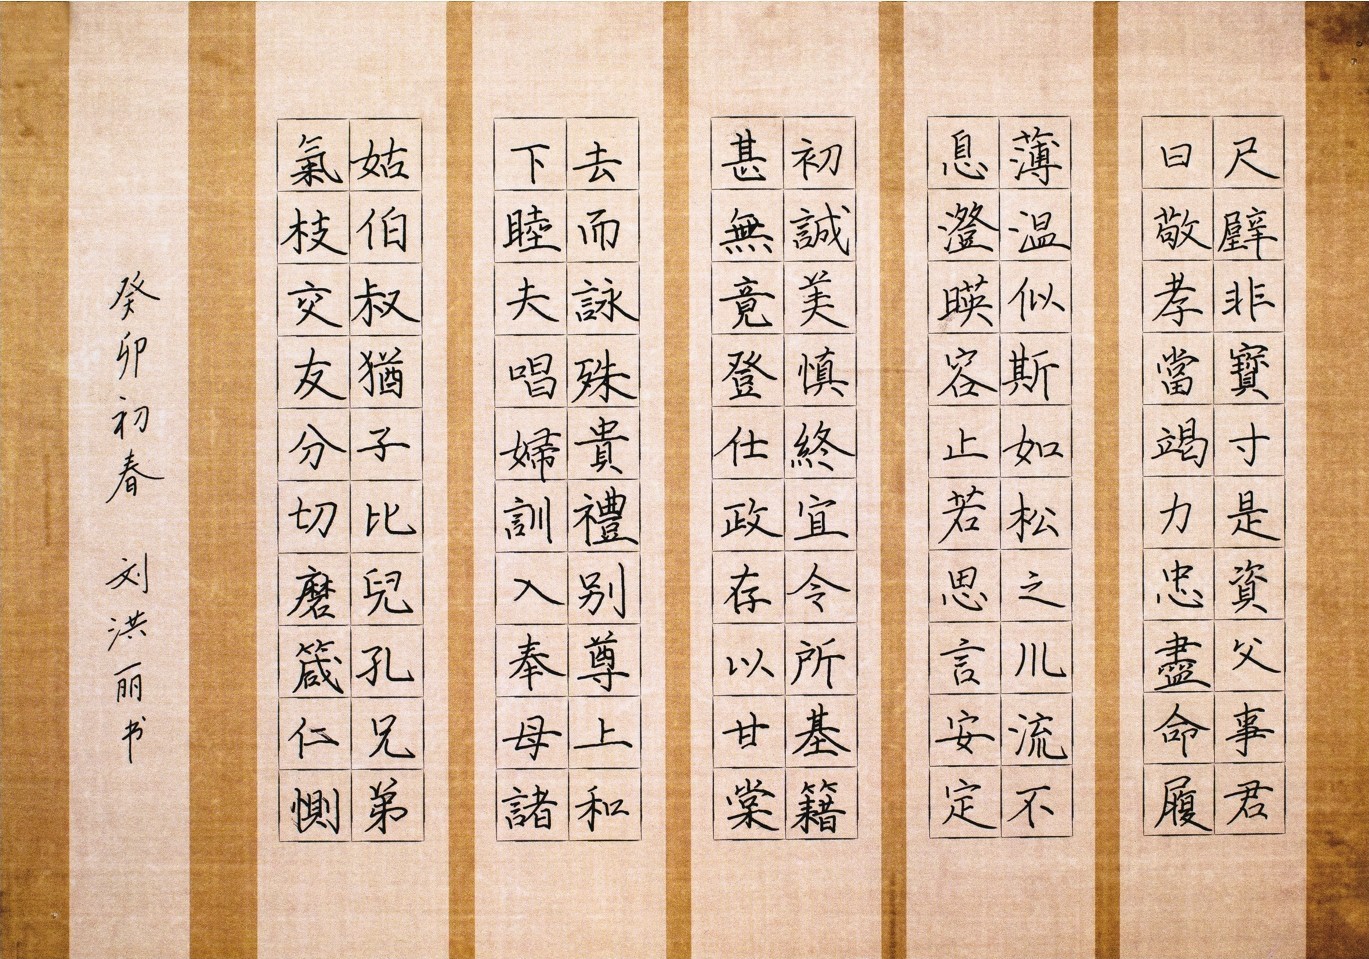 尺璧非寶寸是資父事君
曰敬孝當竭力忠盡命履
薄温似斯如松之川流不
息澄暎容止若思言安定
初誠美慎終宜令所基籍
甚無竟登仕政存以甘棠
去而詠殊貴禮别尊上和
下睦夫唱婦訓入奉母諸
姑伯叔猶子比兒孔兄弟
氣枝交友分切磨箴仁惻
癸卯初春 刘洪丽书